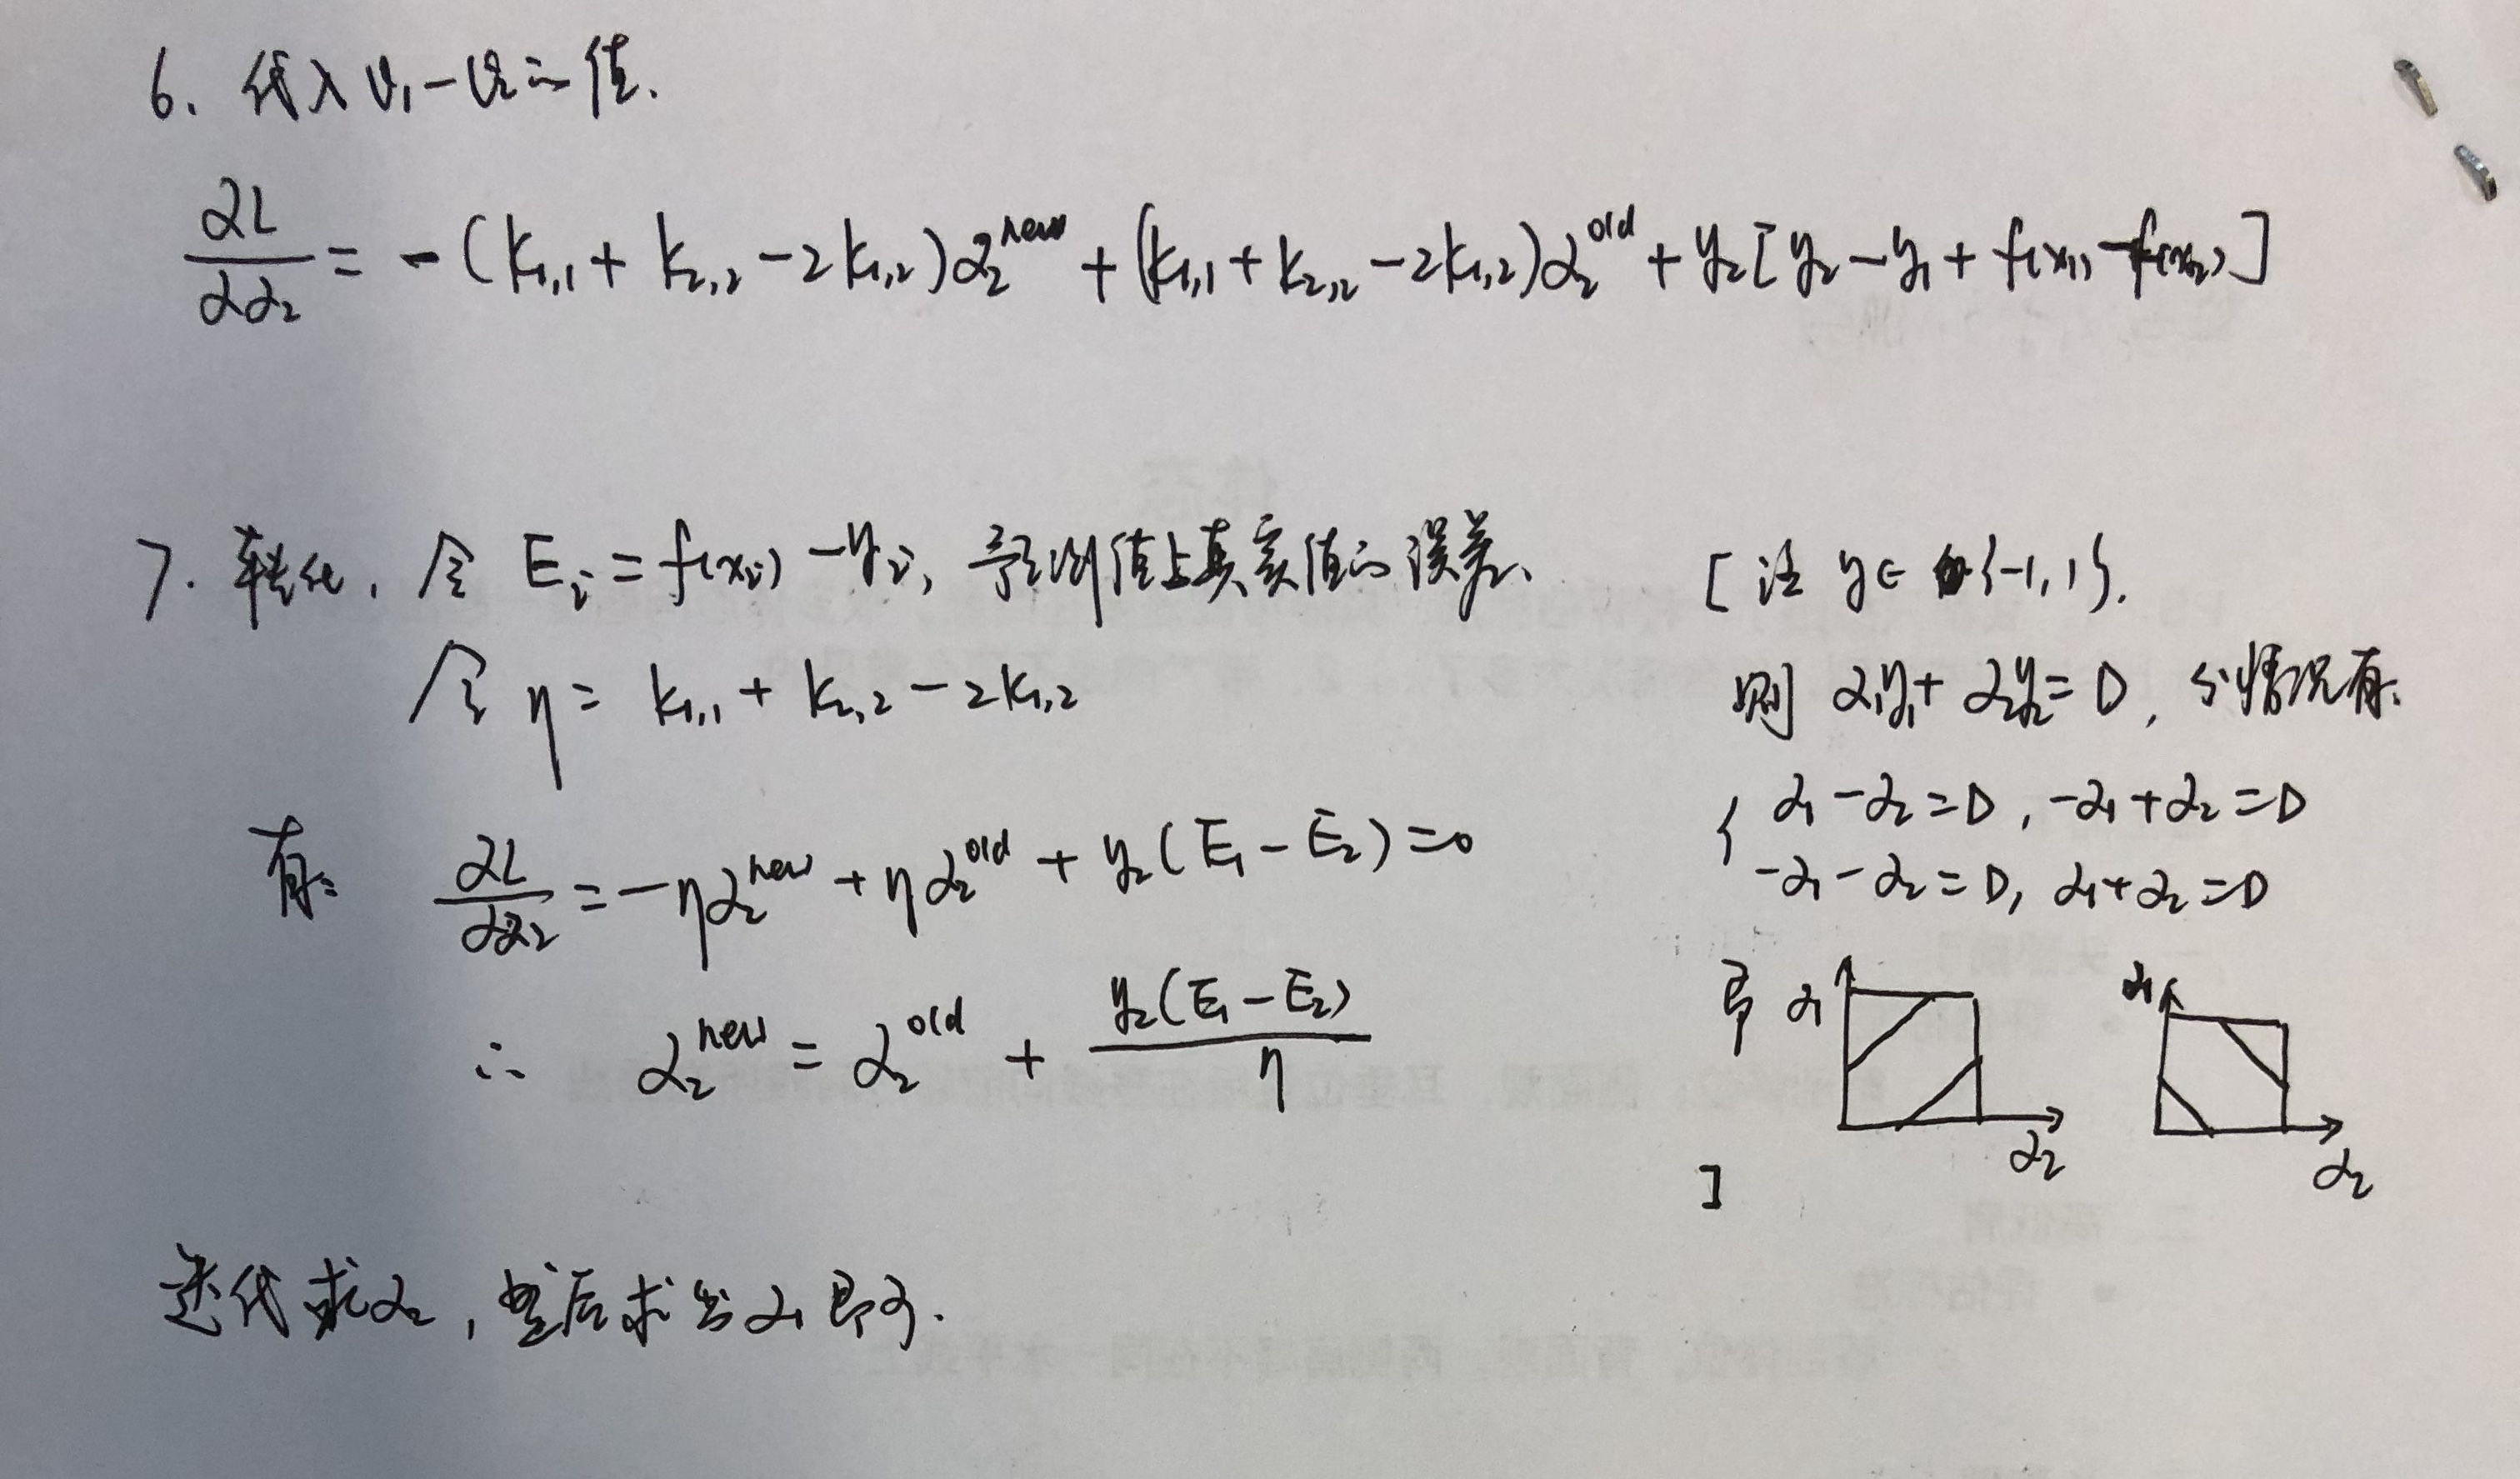 6. 代入 v₁-v₂的值.
∂L/∂α₂ = -(K₁,₁ + K₂,₂ - 2K₁,₂)α₂^new + (K₁,₁ + K₂,₂ - 2K₁,₂)α₂^old + y₂[y₂ - y₁ + f(x₁) - f(x₂)]
7. 转化, 令 Eᵢ = f(xᵢ) - yᵢ, 预测值与真实值的误差、
令 η = K₁,₁ + K₂,₂ - 2K₁,₂
有: ∂L/∂α₂ = -ηα₂^new + ηα₂^old + y₂(E₁ - E₂) = 0
∴ α₂^new = α₂^old + y₂(E₁ - E₂)/η
[注 y∈{-1,1}.
则 α₁y₁ + α₂y₂ = D, 分情况有:
{ α₁ - α₂ = D, -α₁ + α₂ = D
-α₁ - α₂ = D, α₁ + α₂ = D
即 α₁ α₂ α₁ α₂
]
迭代求α₂, 然后求出α₁即可.